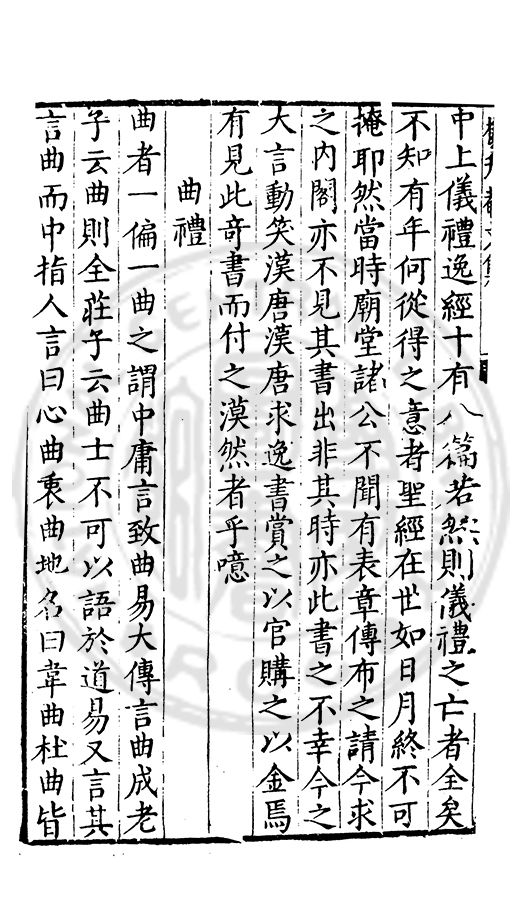 中上儀禮逸經十有八篇若然則儀禮之亡者全矣
不知有年何從得之意者聖經在世如日月終不可
掩耶然當時廟堂諸公不聞有表章傳布之請今求
之内閣亦不見其書出非其時亦此書之不幸今之
大言動笑漢唐漢唐求逸書賞之以官購之以金焉
有見此奇書而付之漠然者乎噫
曲禮
曲者一偏一曲之謂中庸言致曲易大傳言曲成老
子云曲則全莊子云曲士不可以語於道易又言其
言曲而中指人言曰心曲衷曲地名曰韋曲杜曲皆